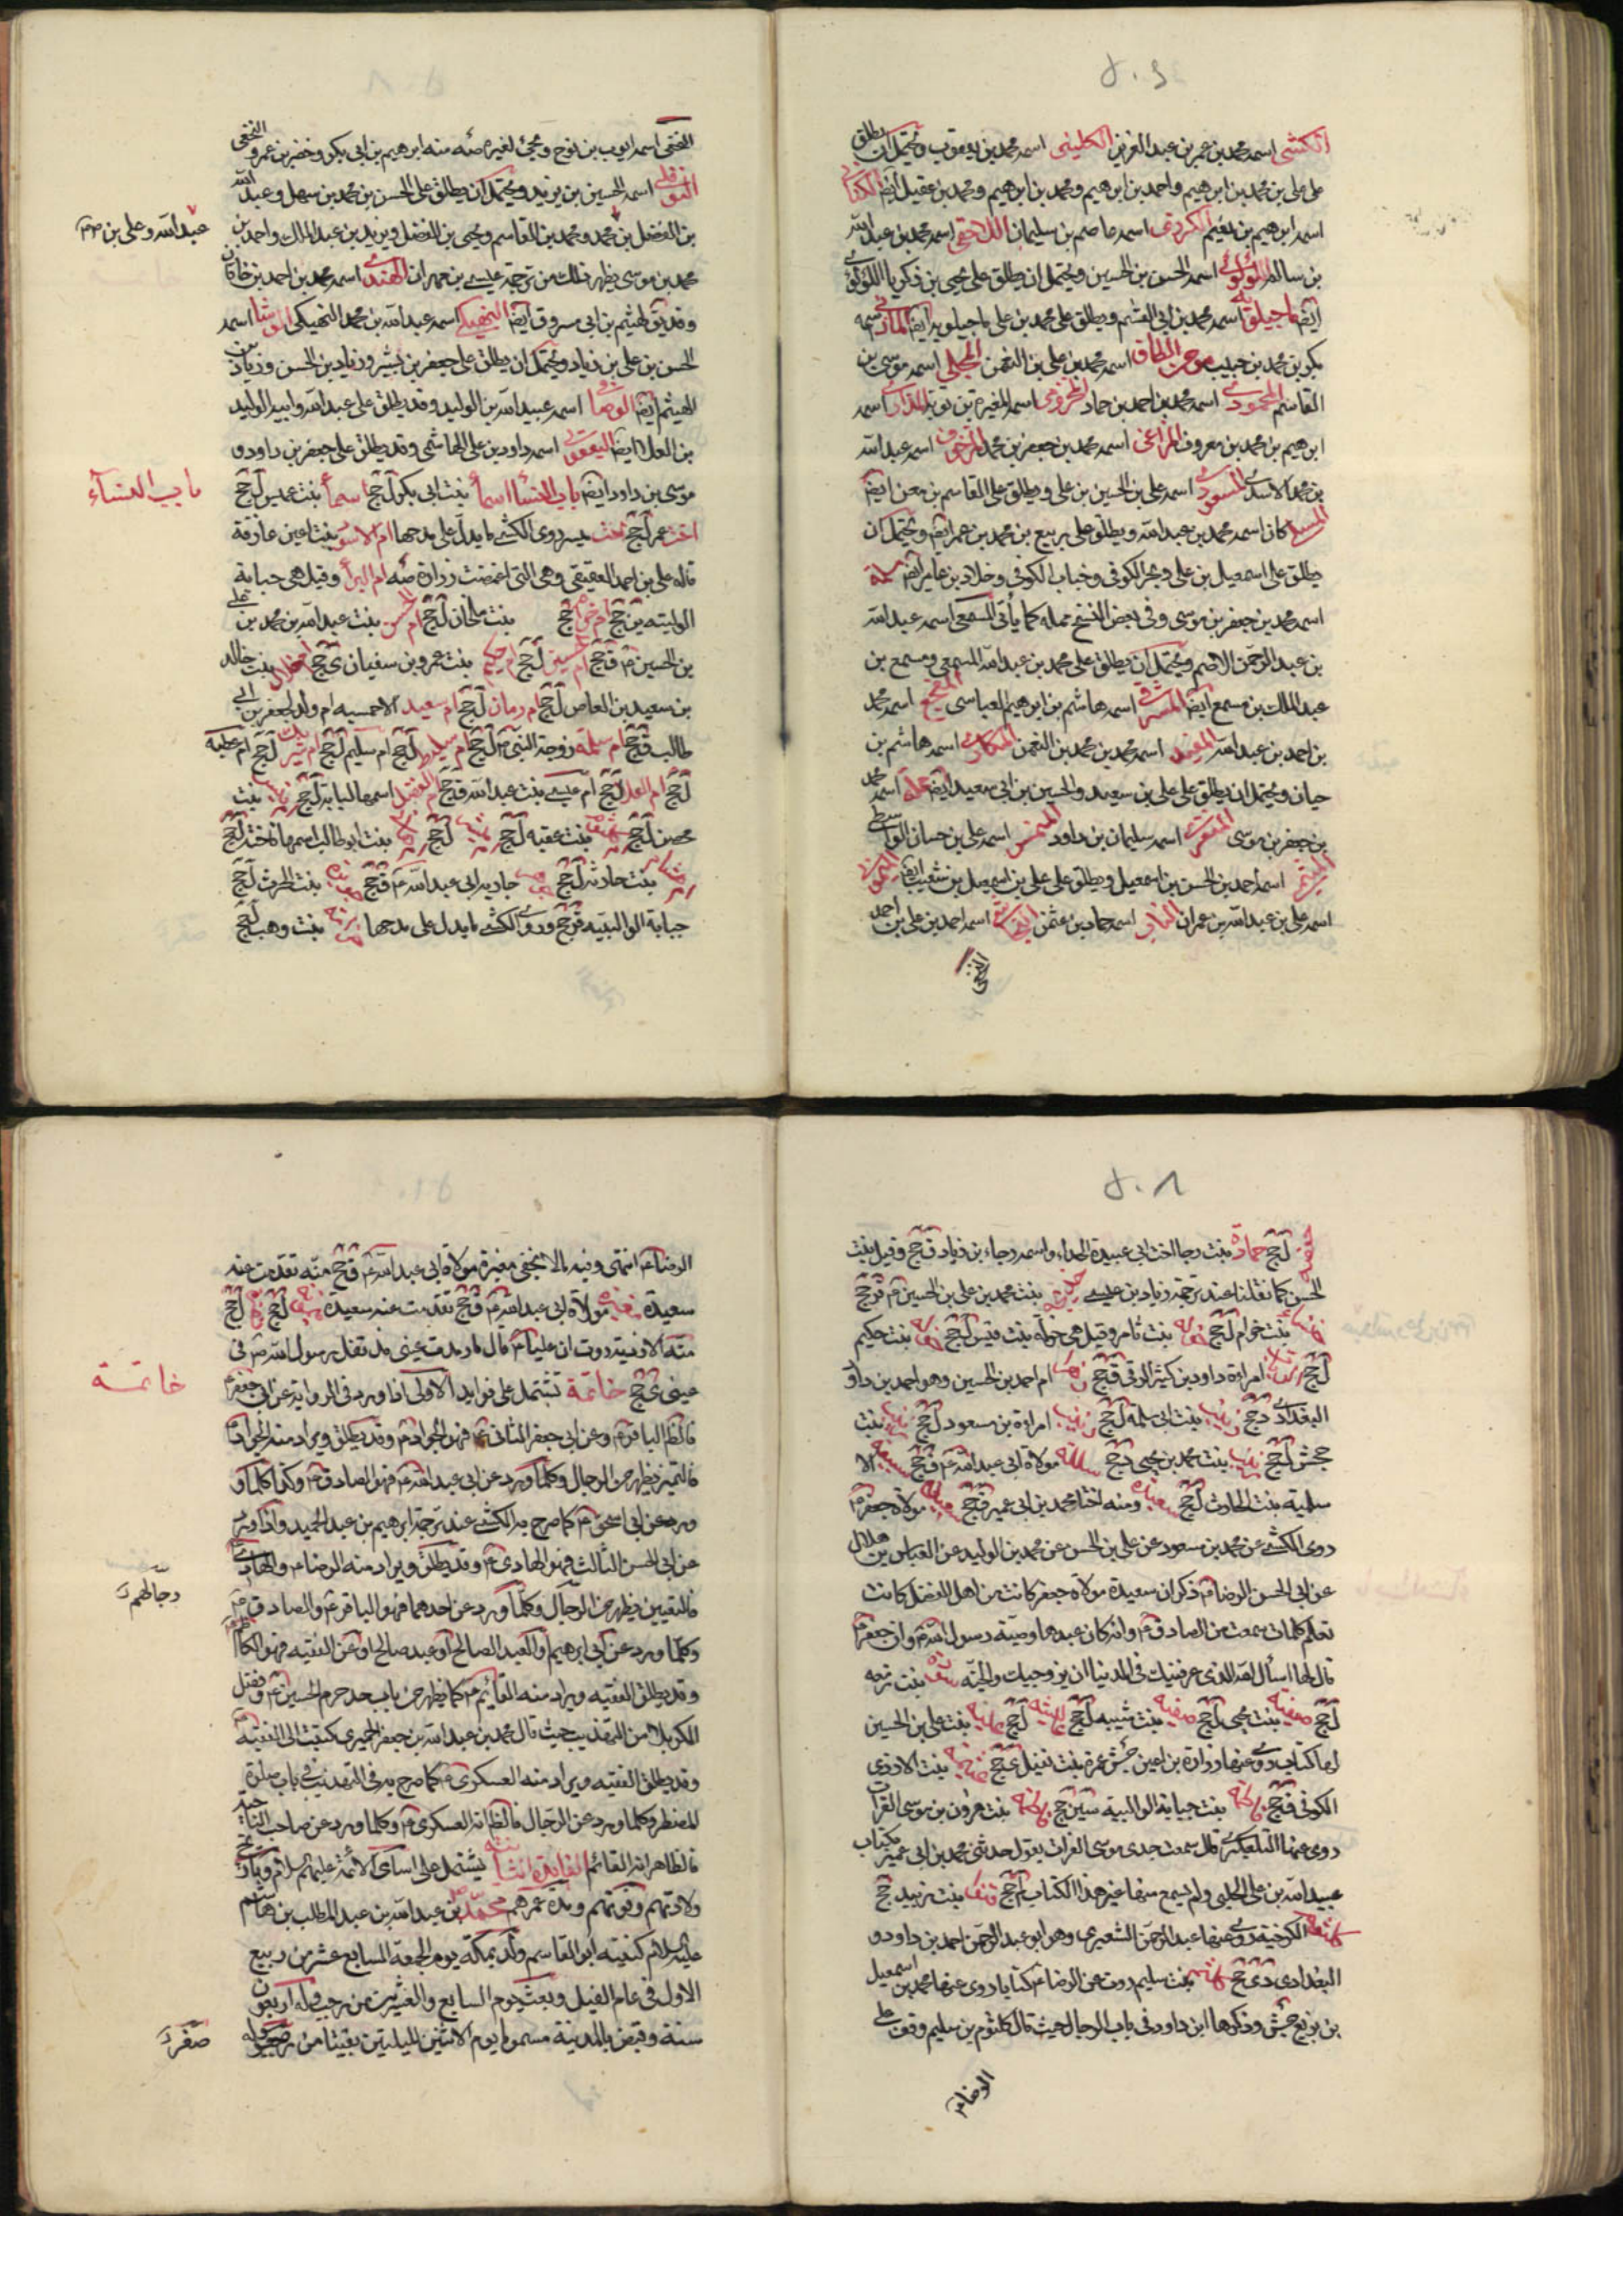 الكشي اسمه محمد بن عمر بن عبد العزيز الكليني اسمه محمد بن يعقوب ويحتمل ان يطلق
على علي بن محمد بن ابرهيم واحمد بن ابرهيم ومحمد بن ابرهيم ومحمد بن عقيل ايضا الكناني
اسمه ابرهيم بن نعيم الكردي اسمه عاصم بن سليمان اللاحقي اسمه محمد بن عبد الله
بن سالم اللؤلؤي اسمه الحسن بن الحسين ويحتمل ان يطلق على يحيى بن زكريا اللؤلؤي
ايضا ماجيلويه اسمه محمد بن ابي القسم ويطلق على محمد بن علي ماجيلويه ايضا المازني اسمه
بكر بن محمد بن حبيب مومن الطاق اسمه محمد بن علي بن النعمن المجلي اسمه موسى بن
القاسم المحمودي اسمه محمد بن احمد بن حماد المخزومي اسمه المغيرة بن توبة المذاري اسمه
ابرهيم بن محمد بن معروف المراغي اسمه محمد بن جعفر بن محمد المزخرف اسمه عبد الله
بن محمد الاسدي المسعودي اسمه علي بن الحسين بن علي ويطلق على القاسم بن معن ايضا
كان اسمه محمد بن عبد الله ويطلق على ربيع بن محمد بن عمر ايضا ويحتمل ان
يطلق على اسمعيل بن علي وبحر الكوفي وخباب الكوفي وخلاد بن عامر ايضا
اسمه محمد بن جعفر بن موسى وفي بعض النسخ مملة كما يأتي المسمعي اسمه عبد الله
بن عبد الرحمن الاصم ويحتمل ان يطلق على محمد بن عبد الله المسمعي ومسمع بن
عبد الملك بن مسمع ايضا المشرقي اسمه هاشم بن ابرهيم العباسي المفجع اسمه محمد
بن احمد بن عبد الله المفيد اسمه محمد بن محمد بن النعمن المكاري اسمه هاشم بن
حيان ويحتمل ان يطلق على علي بن سعيد والحسين بن ابي سعيد ايضا مملة اسمه محمد
بن جعفر بن موسى المنقري اسمه سليمان بن داود المنمس اسمه علي بن حسان الواسطي
الميثمي اسمه احمد بن الحسن بن اسمعيل ويطلق على علي بن اسمعيل بن شعيب ايضا
اسمه علي بن عبد الله بن عمران الناب اسمه حماد بن عثمن النجاشي اسمه احمد بن علي بن احمد
النخعي
النخعي اسمه ايوب بن نوح ويجئ لغيره منه ابرهيم بن ابي بكر وخضر بن عمرو النخعي
النوفلي اسمه الحسين بن يزيد ويحتمل ان يطلق على الحسن بن محمد بن سهل وعبد الله
بن الفضل بن محمد ومحمد بن القاسم ويحيى بن الفضل ويزيد بن عبد الملك واحمد بن
عبد الله وعلي بن
محمد بن موسى يظهر ذلك من ترجمة عيسى بن مهران الهندي اسمه محمد بن احمد بن خاقان
ابي مسروق ايضا النهيكي اسمه عبد الله بن محمد النهيكي الوشا اسمه
الحسن بن علي بن زياد ويحتمل ان يطلق على جعفر بن بشير وزياد بن الحسن وزياد بن
الهيثم ايضا الوصافي اسمه عبيد الله بن الوليد وقد يطلق على عبد الله وابيه الوليد
بن العلا ايضا اليعقوبي اسمه داود بن علي الهاشمي وقد يطلق على جعفر بن داود و
موسى بن داود ايضا باب النساء اسما بنت ابي بكر ل جخ اسما بنت عميس ل جخ
باب النساء
اخت عمر ل جخ اخت ميسر روى الكشي ما يدل على مدحها ام الاسود بنت اعين عارفة
قاله علي بن احمد العقيقي وهي التي اغمضت زرارة ام البرا وقيل هي حبابة
الوالبية ين جخ بنت ملحان ل جخ بنت عبد الله بن محمد بن علي
بن الحسين ق جخ ام الحسين ل جخ ام حكيم بنت عمرو بن سفيان ي جخ ام خالد بنت خالد
بن سعيد بن العاص ل جخ ام رمان ل جخ ام سعيد الاحمسيه ام ولد لجعفر بن ابي
طالب ق جخ ام سلمة زوجة النبي ل جخ ام سليط ل جخ ام سليم ل جخ ام شريك ل جخ ام عطية
ل جخ ام العلا ل جخ ام عيسى بنت عبد الله ق جخ ام الفضل اسمها لبابة ل جخ بنت
محصن ل جخ بنت عقبه ل جخ ل جخ بنت ابو طالب اسمها فاختة ل جخ
بنت حارثة ل جخ جارية ابي عبد الله ق جخ بنت الحرث ل جخ
حبابة الوالبية ق جخ وروى الكشي ما يدل على مدحها بنت وهب ل جخ
حفصة ل جخ حمادة بنت رجا اخت ابي عبيدة الحذاء واسمه رجاء بن زياد ق جخ وقيل بنت
الحسن كما نقلنا عند ترجمة زياد بن عيسى خديجة بنت محمد بن علي بن الحسين ق جخ
خنساء بنت خزام ل جخ خولة بنت ثامر وقيل هي خولة بنت قيس ل جخ خولة بنت حكيم
ل جخ امراءة داود بن كثير الرقي ق جخ ام احمد بن الحسين وهو احمد بن داود
البغدادي دي جخ زينب بنت ابي سلمة ل جخ زينب امراءة بن مسعود ل جخ زينب بنت
جحش ل جخ زينب بنت محمد بن يحيى دي جخ سالمة مولاة ابي عبد الله ق جخ سبيعة الا
سلمية بنت الحارث ل جخ سعيدة ومنه اختا محمد بن ابي عمير ق جخ سعيدة مولاة جعفر
روى الكشي عن محمد بن مسعود عن علي بن الحسن عن محمد بن الوليد عن العباس بن هلال
عن ابي الحسن الرضا ذكر ان سعيدة مولاة جعفر كانت من اهل الفضل كانت
تعلم كلمات سمعت من الصادق وانه كان عندها وصية رسول الله وان جعفر
قال لها اسأل الله الذي عرفنيك في الدنيا ان يزوجنيك في الجنة بنت زمعه
ل جخ صفية بنت حيي ل جخ صفية بنت شيبه ل جخ ل جخ علية بنت علي بن الحسين
لها كتاب روى عنها زرارة بن اعين جش عمرة بنت نفيل ي جخ بنت الازدي
الكوفي ق جخ فاطمة بنت حبابة الوالبية سين جخ فاطمة بنت هرون بن موسى الفرات
روى عنها التلعكبري قال سمعت جدي موسى الفرات يقول حدثني محمد بن ابي عمير بكتاب
عبيد الله بن علي الحلبي ولم يسمع منها غير هذا الكتاب لم جخ
الكرخية روى عنها عبد الرحمن الشعيري وهو ابو عبد الرحمن احمد بن داود
البغدادي دي جخ كلثم بنت سليم روت عن الرضا كتابا روى عنها محمد بن اسمعيل
بن بزيع جش وذكرها ابن داود في باب الرجال حيث قال كلثوم بن سليم وقف على
الرضا
الرضا انتهى وفيه ما لا يخفى مغيرة مولاة ابي عبد الله ق جخ منه تقدمت عند
سعيدة مولاة ابي عبد الله ق جخ تقدمت عند سعيدة ل جخ ل جخ
منه الازدية روت ان عليا قال ما رمدت عيني مذ تفل رسول الله في
عيني ي جخ خاتمة تشتمل على فوايد الاولى اذا ورد في الرواية عن ابي جعفر
خاتمة
فالظ الباقر وعن ابي جعفر الثاني فهو الجواد وقد يطلق ويراد منه الجواد
فالتميز يظهر من الرجال وكلما ورد عن ابي عبد الله فهو الصادق وكذا كلما
ورد عن ابي اسحق كما صرح به الكشي عند ترجمة ابرهيم بن عبد الحميد واذا ورد
عن ابي الحسن الثالث فهو الهادي وقد يطلق ويراد منه الرضا والهادي
رجالهم
فالتعيين يظهر من الرجال وكلما ورد عن احدهما فهو الباقر والصادق
وكلما ورد عن ابي ابرهيم والعبد الصالح او عبد صالح او عن الفقيه فهو الكاظم
وقد يطلق الفقيه ويراد منه القائم كما يظهر من باب حد حرم الحسين وفضل
الكربلا من التهذيب حيث قال محمد بن عبد الله بن جعفر الحميري كتبت الى الفقيه
وقد يطلق الفقيه ويراد منه العسكري كما صرح به في التهذيب في باب صلوة
المضطر وكلما ورد عن الرجال فالظ انه العسكري وكلما ورد عن صاحب الناحية
فالظاهر انه القائم الفايدة الثانية يشتمل على اسامي الائمة عليهم السلام وتاريخ
ولادتهم وفوتهم ومدة عمرهم محمد بن عبد الله بن عبد المطلب بن هاشم
عليه السلام كنيته ابو القاسم ولد بمكة يوم الجمعة السابع عشر من ربيع
الاول في عام الفيل وبعث يوم السابع والعشرين من رجب وله اربعون
سنة وقبض بالمدينة مسموما يوم الاثنين لليلتين بقيتا من
صفر